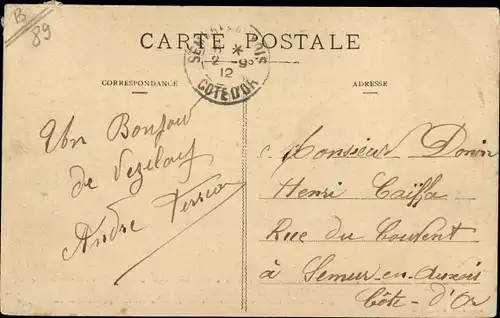 B
89
CARTE POSTALE
SEMUR-EN-AUXOIS
2 -9
12
COTE D'OR
CORRESPONDANCE
ADRESSE
Un Bonjour
de Vezelay
André
Monsieur
Henri Caïffa
Rue du Couvent
à Semur-en-Auxois
Côte-d'Or